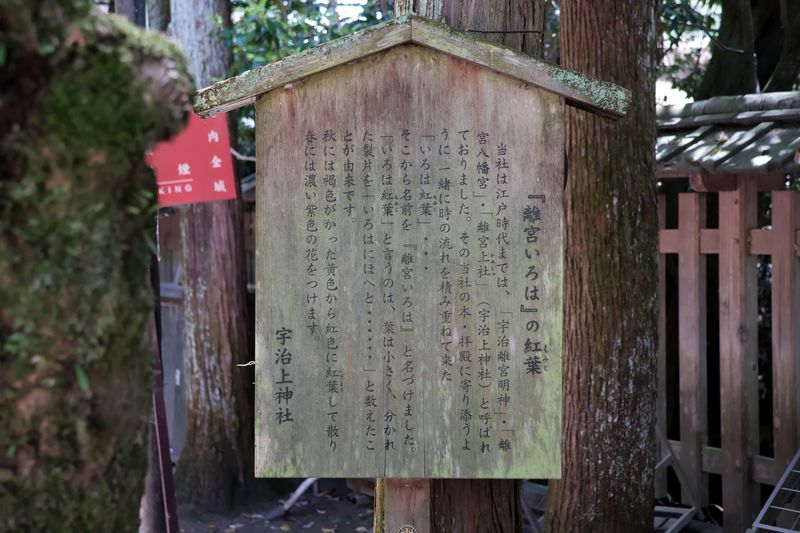 『離宮いろは』の紅葉
もみじ
当社は江戸時代までは、「宇治離宮明神」・「離
宮八幡宮」・「離宮上社」（宇治上神社）と呼ばれ
ておりました。その当社の本・拝殿に寄り添うよ
うに一緒に時の流れを積み重ねて来た
「いろは紅葉」・・・
そこから名前を『離宮いろは』と名づけました。
「いろは紅葉」と言うのは、葉は小さく、分かれ
た裂片を「いろはにほへと・・・・・」と数えたこ
とが由来です。
秋には褐色がかった黄色から紅色に紅葉して散り
春には濃い紫色の花をつけます。
宇治上神社
内全域
煙
KING